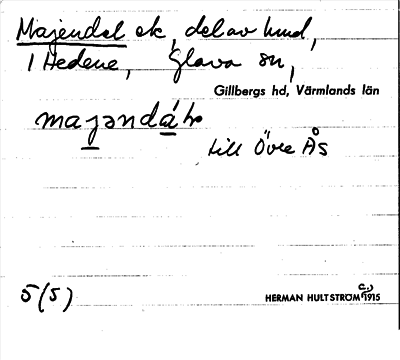 Majendel ek, del av hmd,
1 Hedene, Glava sn,
Gillbergs hd, Värmlands län
majəndáḷ
till Övre Ås
5(5)
HERMAN HULTSTRÖM 1915